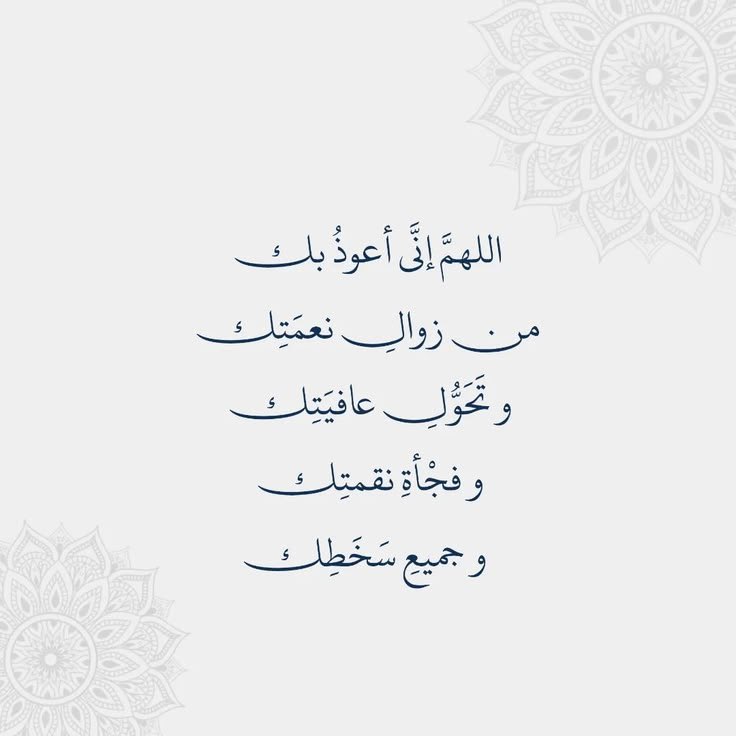 اللهمَّ إنَّى أعوذُ بك
من زوالِ نعمَتِك
و تَحَوُّلِ عافيَتِك
و فجْأةِ نقمتِك
و جميعِ سَخَطِك